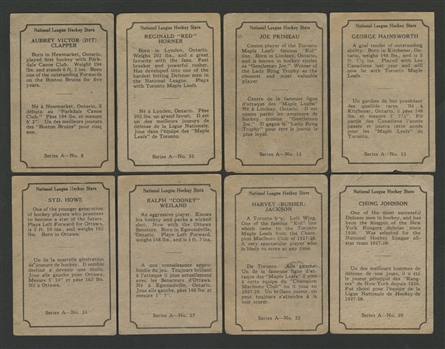 National League Hockey Stars
AUBREY VICTOR (DIT)
CLAPPER
Born in Newmarket, Ontario,
played first hockey with Park-
dale Canoe Club. Weight 194
lbs. and stands 6 ft. 2 in. He is
one of the outstanding Forwards
on the Boston Bruins for
years.
Né à Newmarket, Ontario, il
débuta au "Parkdale Canoe
Club." Pèse 194 lbs. et mesure
6' 2". Un des meilleurs joueurs
des "Boston Bruins" pour
ans.
Series A—No.
National League Hockey Stars
REGINALD "RED"
HORNER
Born in Lynden, Ontario.
Weighs 202 lbs. and a great
favorite with the fans. Fast
breaker and powerful rusher.
Has developed into one of the
hardest hitting Defense men in
the National Hockey League.
Plays with Toronto Maple Leafs.
Né à Lynden, Ontario. Pèse
202 lbs. un grand favori. Il est
un des meilleurs joueurs de
défense de la Ligue Nationale.
Joue dans l'équipe des "Maple Leafs"
de Toronto.
Series A—No.
National League Hockey Stars
JOE PRIMEAU
Centre player of the Toronto
Maple Leafs' famous "Kid"
line. Born in Lindsay, Ontario,
and is known in hockey circles
as "Gentleman Joe." Winner of
the Lady Byng Trophy as the
cleanest and most valuable
player.
Centre de la fameuse ligne
d'attaque des "Maple Leafs."
Né à Lindsay, Ontario. Il est
connu parmi les amateurs de
hockey comme "Gentleman
Joe." Il gagna le "Lady Byng
Trophy" pour être le joueur le
plus loyal.
Series A—No.
National League Hockey Stars
GEORGE HAINSWORTH
A goal tender of outstanding
ability. Born in Kitchener, On-
tario, weighs 148 lbs. and is 5
ft. in. Played with Los
Canadiens last year and will
now be with Toronto Maple
Leafs.
Un gardien de but possédant
des qualités rares. Né à
Kitchener, Ontario, il pèse 148
lbs. et mesure
de Toronto.
Series A—No.
National League Hockey Stars
SYD. HOWE
One of the younger generation
of hockey players who promises
to become a star of the future.
Plays Left Forward for Ottawa,
is 5 ft. 10 ins. and weighs 162
lbs. Born in Ottawa.
Un de la nouvelle génération
de joueurs de hockey. Il semble
destiné à devenir une étoile.
Joue aile gauche pour Ottawa.
Mesure 5' 10" et pèse 162 lbs.
Né à Ottawa.
Series A—No.
National League Hockey Stars
RALPH "COONEY"
WEILAND
An aggressive player. Knows
his hockey and packs a wicked
shot. Now with the Ottawa
Senators. Born in Egmondville,
Ontario. Plays Left Forward,
weighs 148 lbs. and is 5 ft. 7 ins.
A une connaissance appro-
fondie du jeu. Toujours brillant
à l'attaque il joue actuellement
avec les Senateurs d'Ottawa.
Né à Egmondville, Ontario.
Joue aile gauche, pèse 148 lbs et
mesure 5' 7".
Series A—No. 27
National League Hockey Stars
HARVEY (BUSHER)
JACKSON
A Toronto boy. Left Wing.
One of the famous "Kid" line
which came to the Toronto
Maple Leafs from the Cham-
pion Marlboro Club of
A very spectacular player who
is likely to score at any time.
De Toronto. Aile gauche.
Un de la fameuse ligne d'at-
taque des "Maple Leafs"
Un brillant joueur, on
peut toujours s'attendre à le
voir scorer.
Series A—No.
National League Hockey Stars
CHING JOHNSON
One of the most successful
Defense men in hockey, and has
been the kingpin of the New
York Rangers defense since
1926. Was selected for the
National Hockey League all-
star team 1927-28.
Un des meilleurs hommes de
défense de nos jours, il est le
joueur principal des "Rang-
ers" de New York depuis 1926.
Fut choisi pour l'équipe de la
Ligue Nationale de Hockey de
1927-28.
Series A—No.